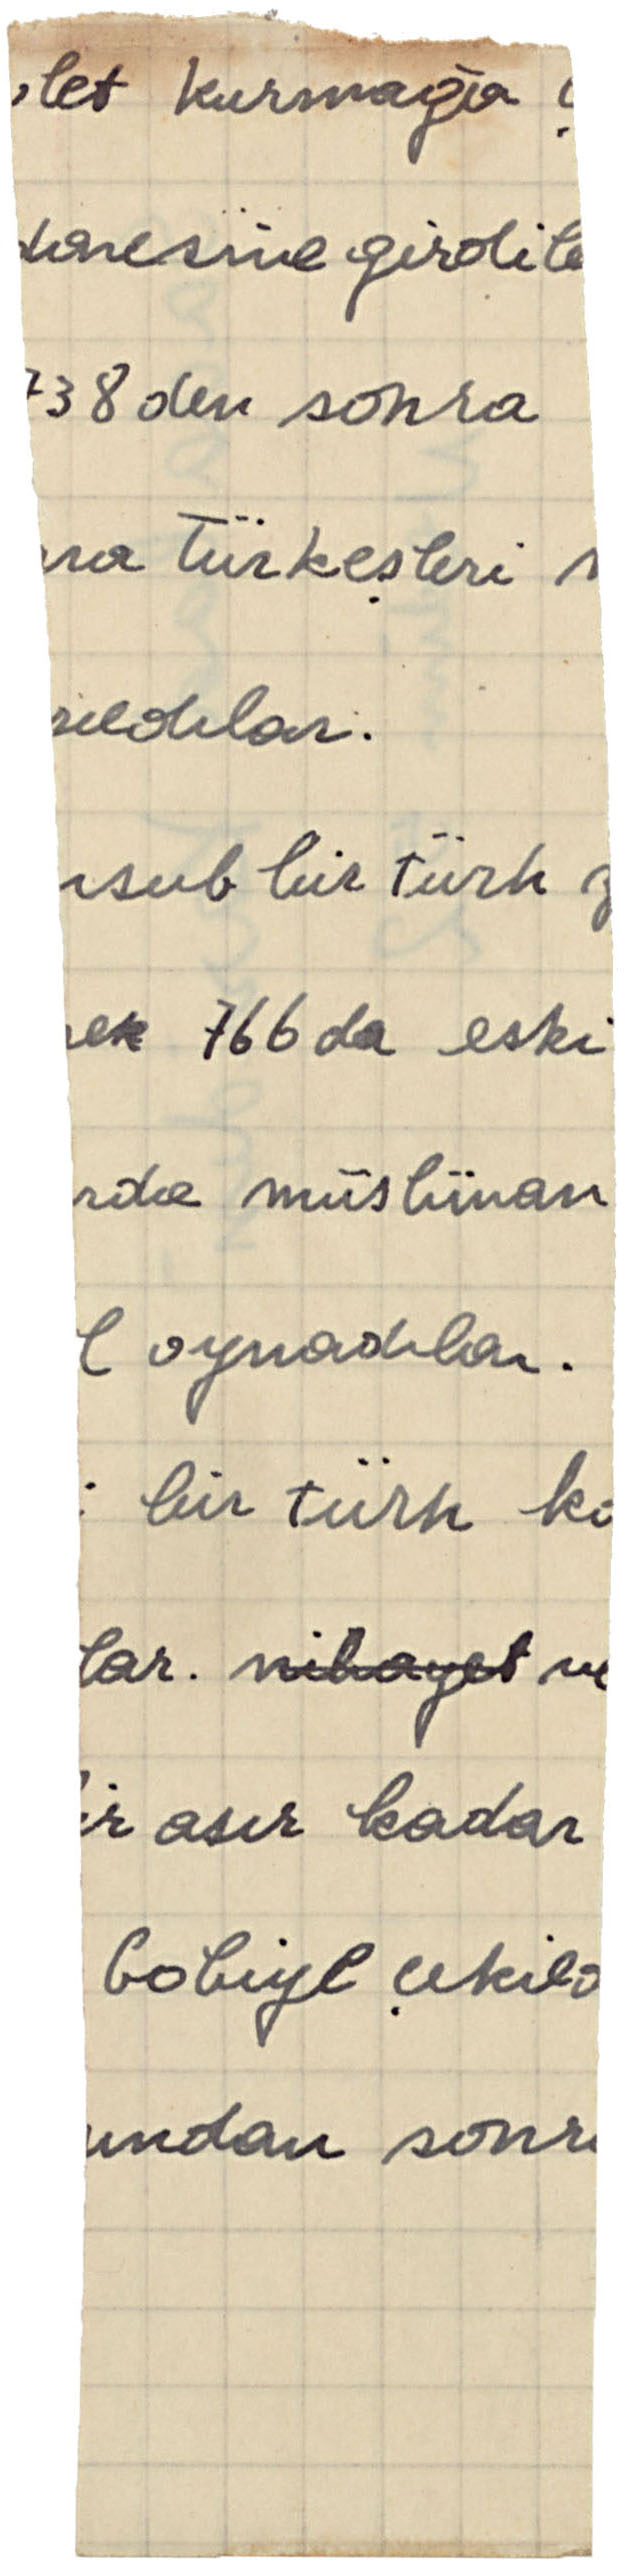 let kurmağa
daresine girdile
738 den sonra
ra Türkeşleri
rıldılar.
nsub bir türk
rek 766 da eski
rda müslüman
l oynadılar.
bir türk ka
lar. nihayet ve
ir asır kadar
Cobiyl çekild
undan sonra